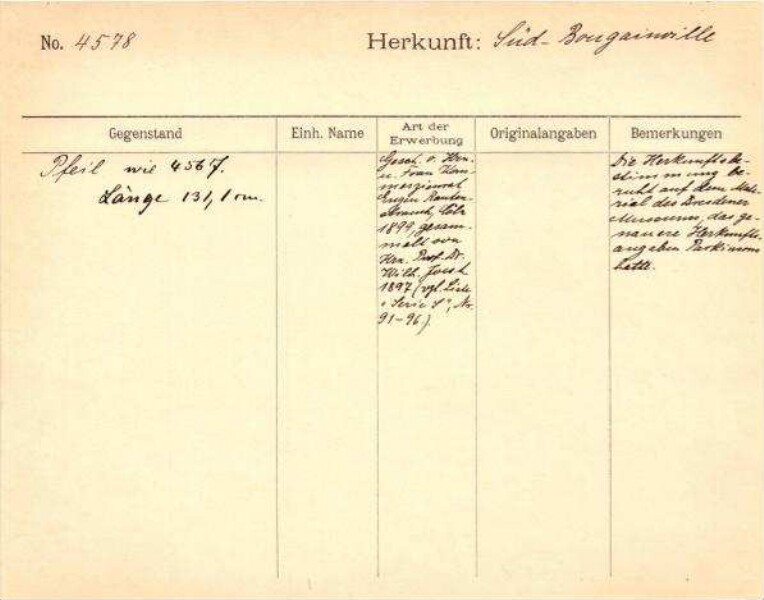 No. 4578
Herkunft: Süd-Bougainville
Gegenstand
Einh. Name
Art der
Erwerbung
Originalangaben
Bemerkungen
Pfeil wie 4567.
Länge 131,1 cm.
Gesch. v. Hrn.
u. Frau Kom-
merzienrat
Eugen Rauten-
strauch, Cöln
1899, gesam-
melt von
Hrn. Prof. Dr.
Wilh. Joest
1897 (vgl. Liste
"Serie S", No.
91-96).
Die Herkunftsbe-
stimmung be-
ruht auf dem Mate-
rial des Dresdener
Museums, das ge-
nauere Herkunfts-
angaben Parkinsons
hatte.